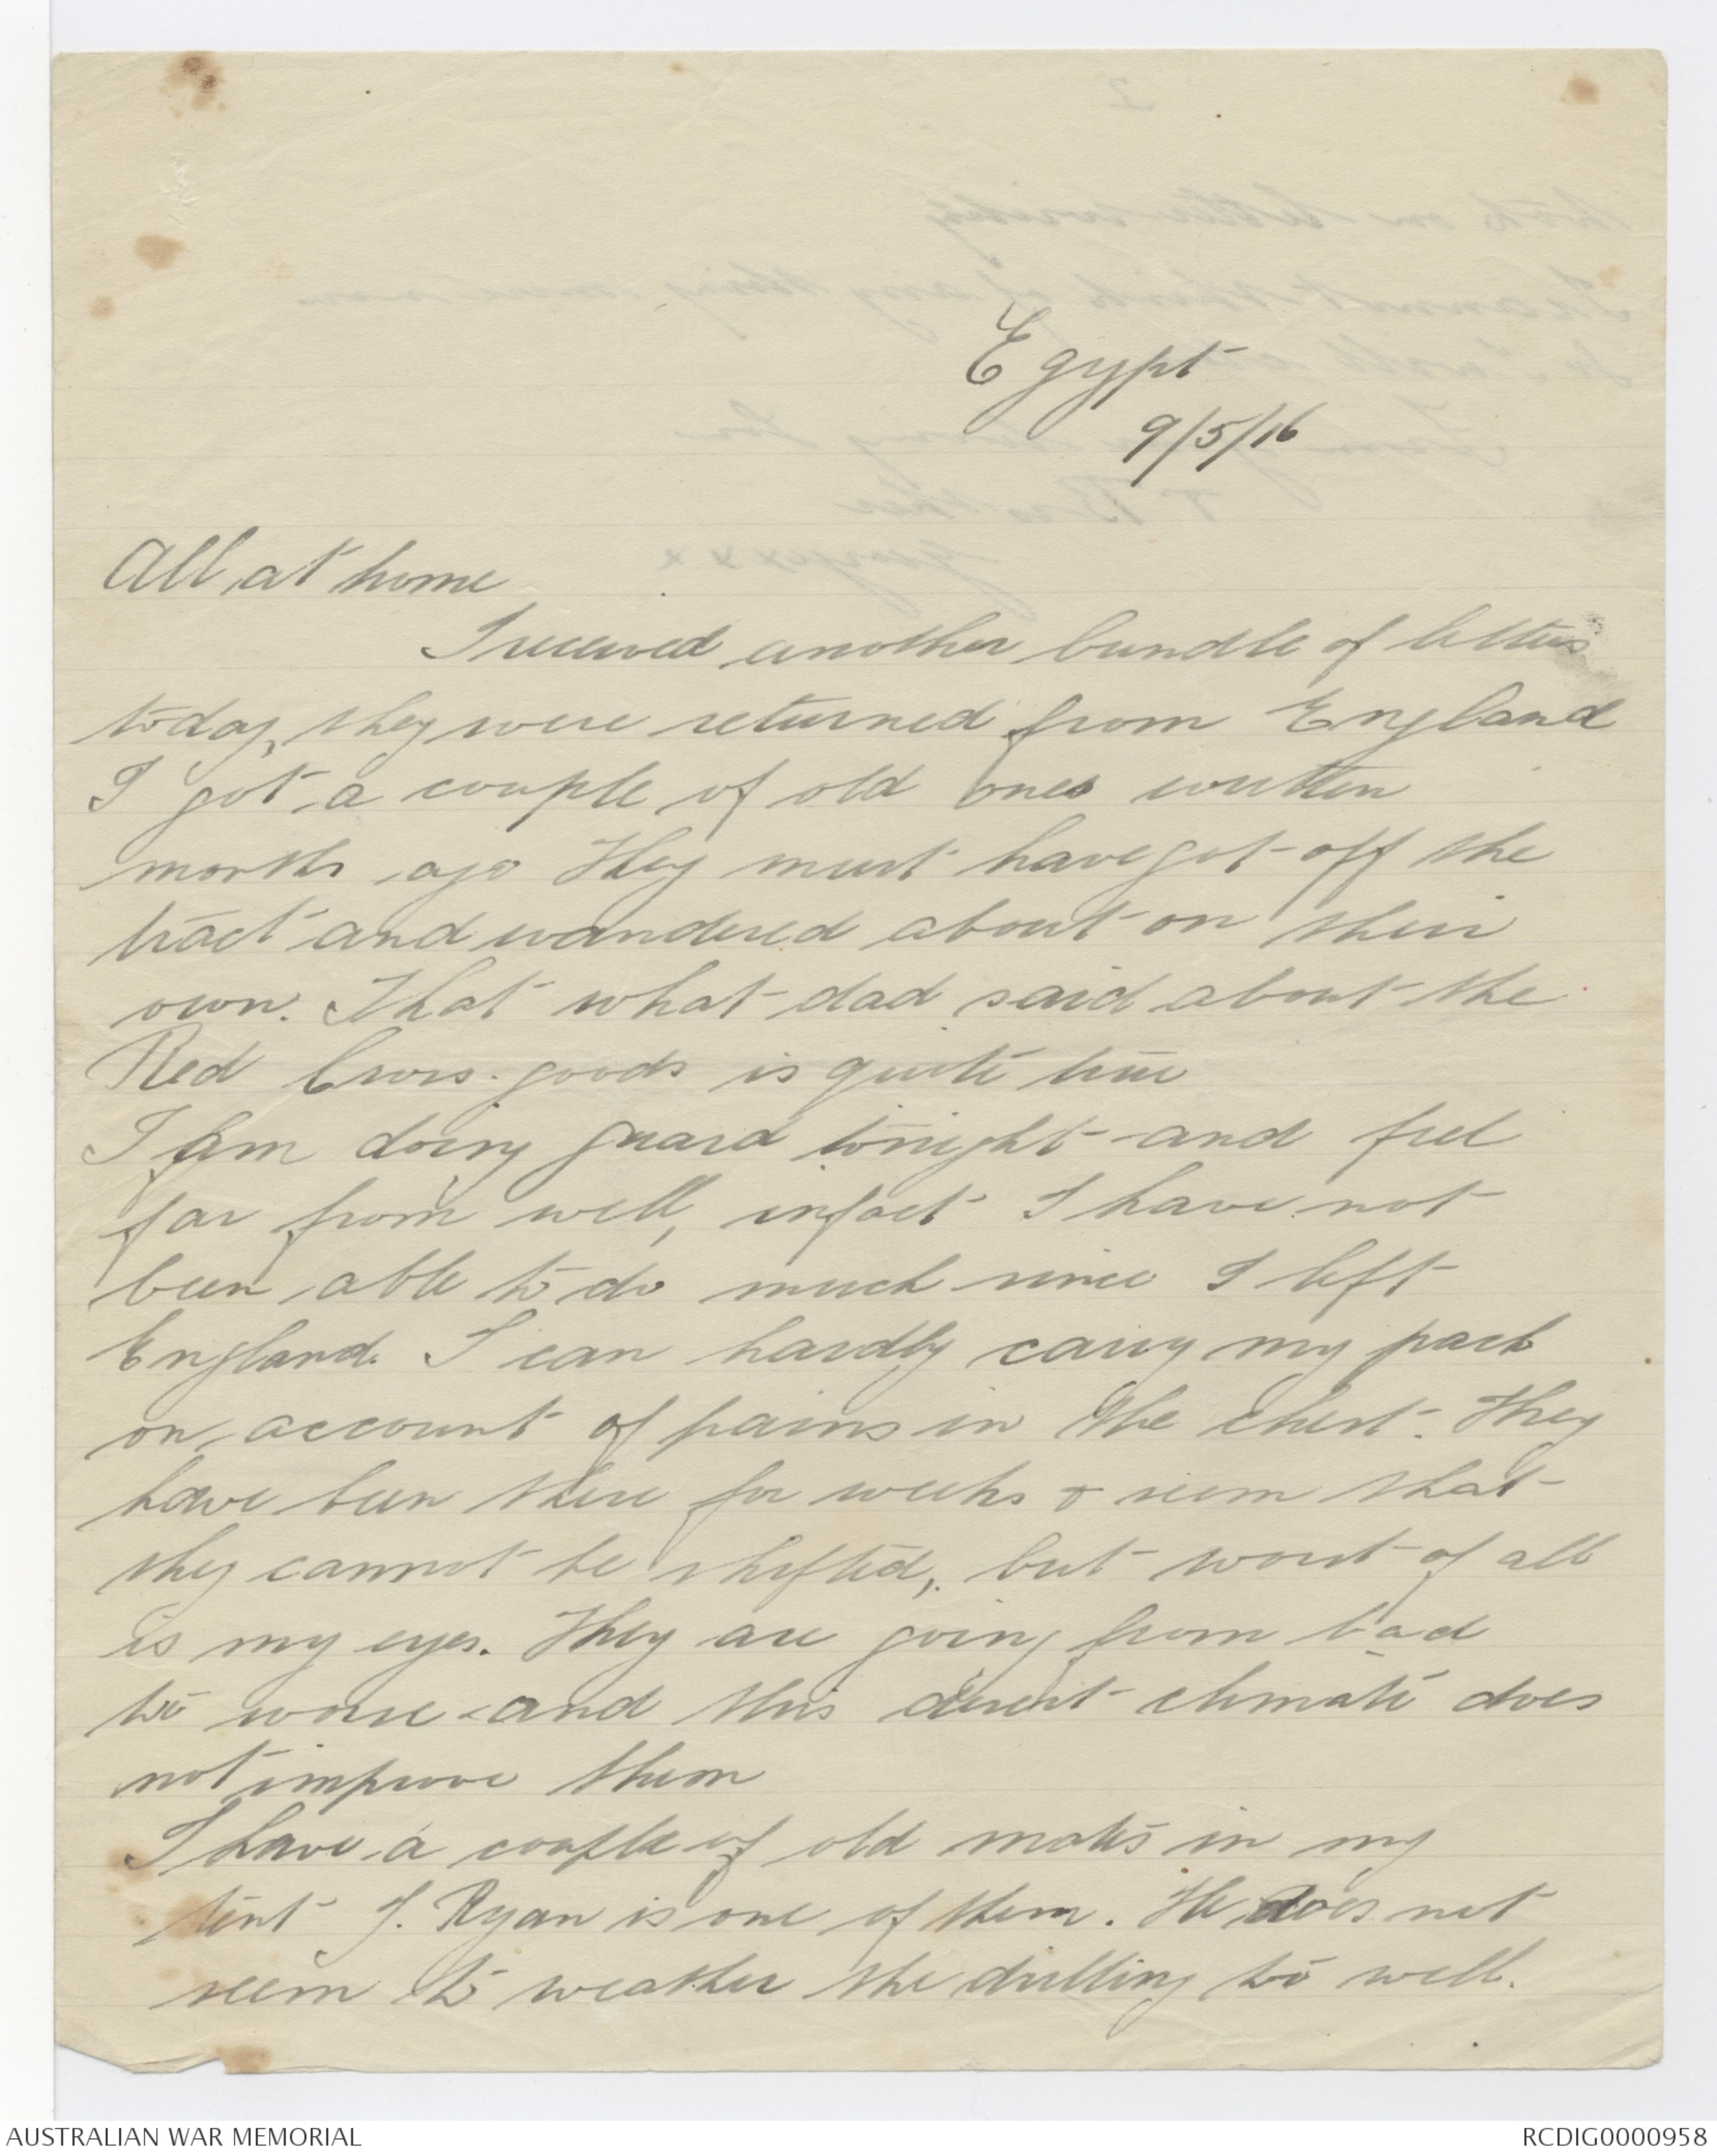 Egypt
9/5/16
All at home
I received another bundle of letters
today, they were returned from England
I got a couple of old ones written
months ago They must have got off the
tract and wandered about on their
own. That what dad said about the
Red Cross goods is quite true
I am doing guard tonight and feel
far from well, infact I have not
been able to do much since I left
England. I can hardly carry my pack
on account of pains in the chest. They
have been there for weeks & seem that
they cannot be shifted, but worst of all
is my eyes. They are going from bad
to worse and this desert climate does
not improve them
I have a couple of old mates in my
tent J. Ryan is one of them. He does not
seem to weather the drilling to well.
AUSTRALIAN WAR MEMORIAL
RCDIG0000958